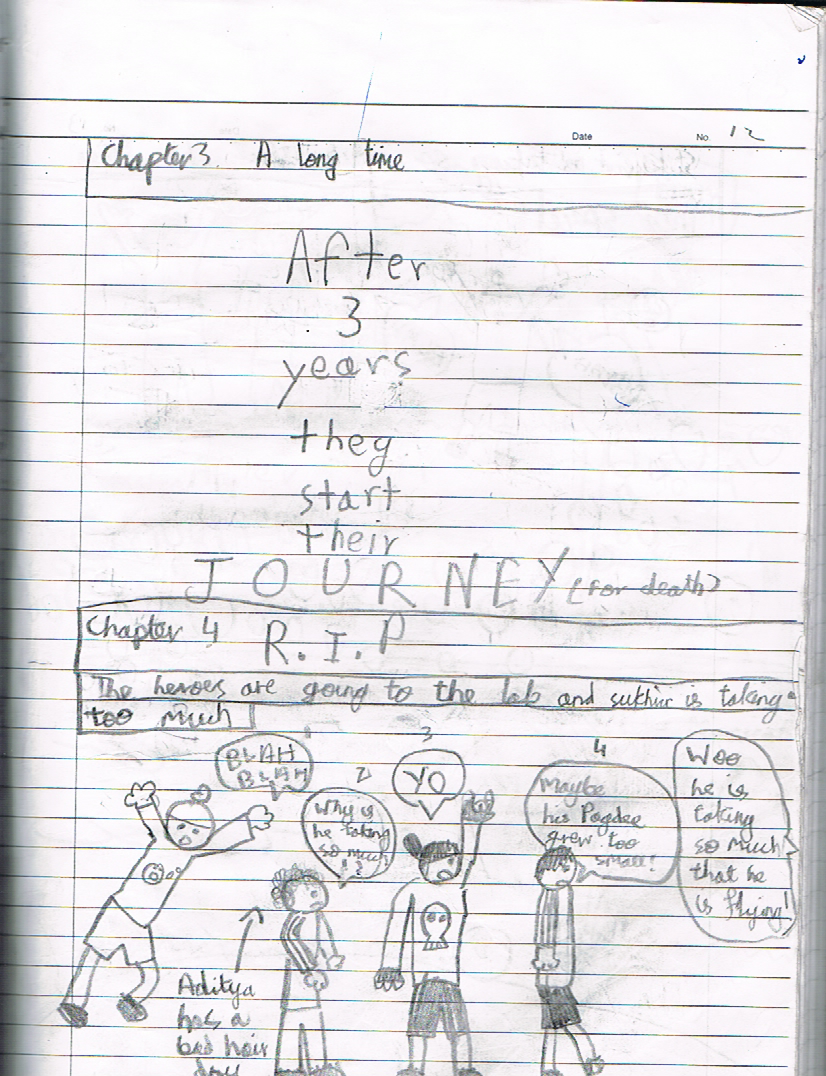 Date No. 12
Chapter 3 A long time
After
3
years
they
start
their
JOURNEY (for death)
Chapter 4 R.I.P
The heroes are going to the lab and sukhur is taking
too much
1
BLAH
BLAH
2
Why is
he taking
so much
!?
3
YO
4
Maybe
his Pagdee
grew too
small!
Woo
he is
taking
so much
that he
is flying!
Aditya
has a
bad hair
day